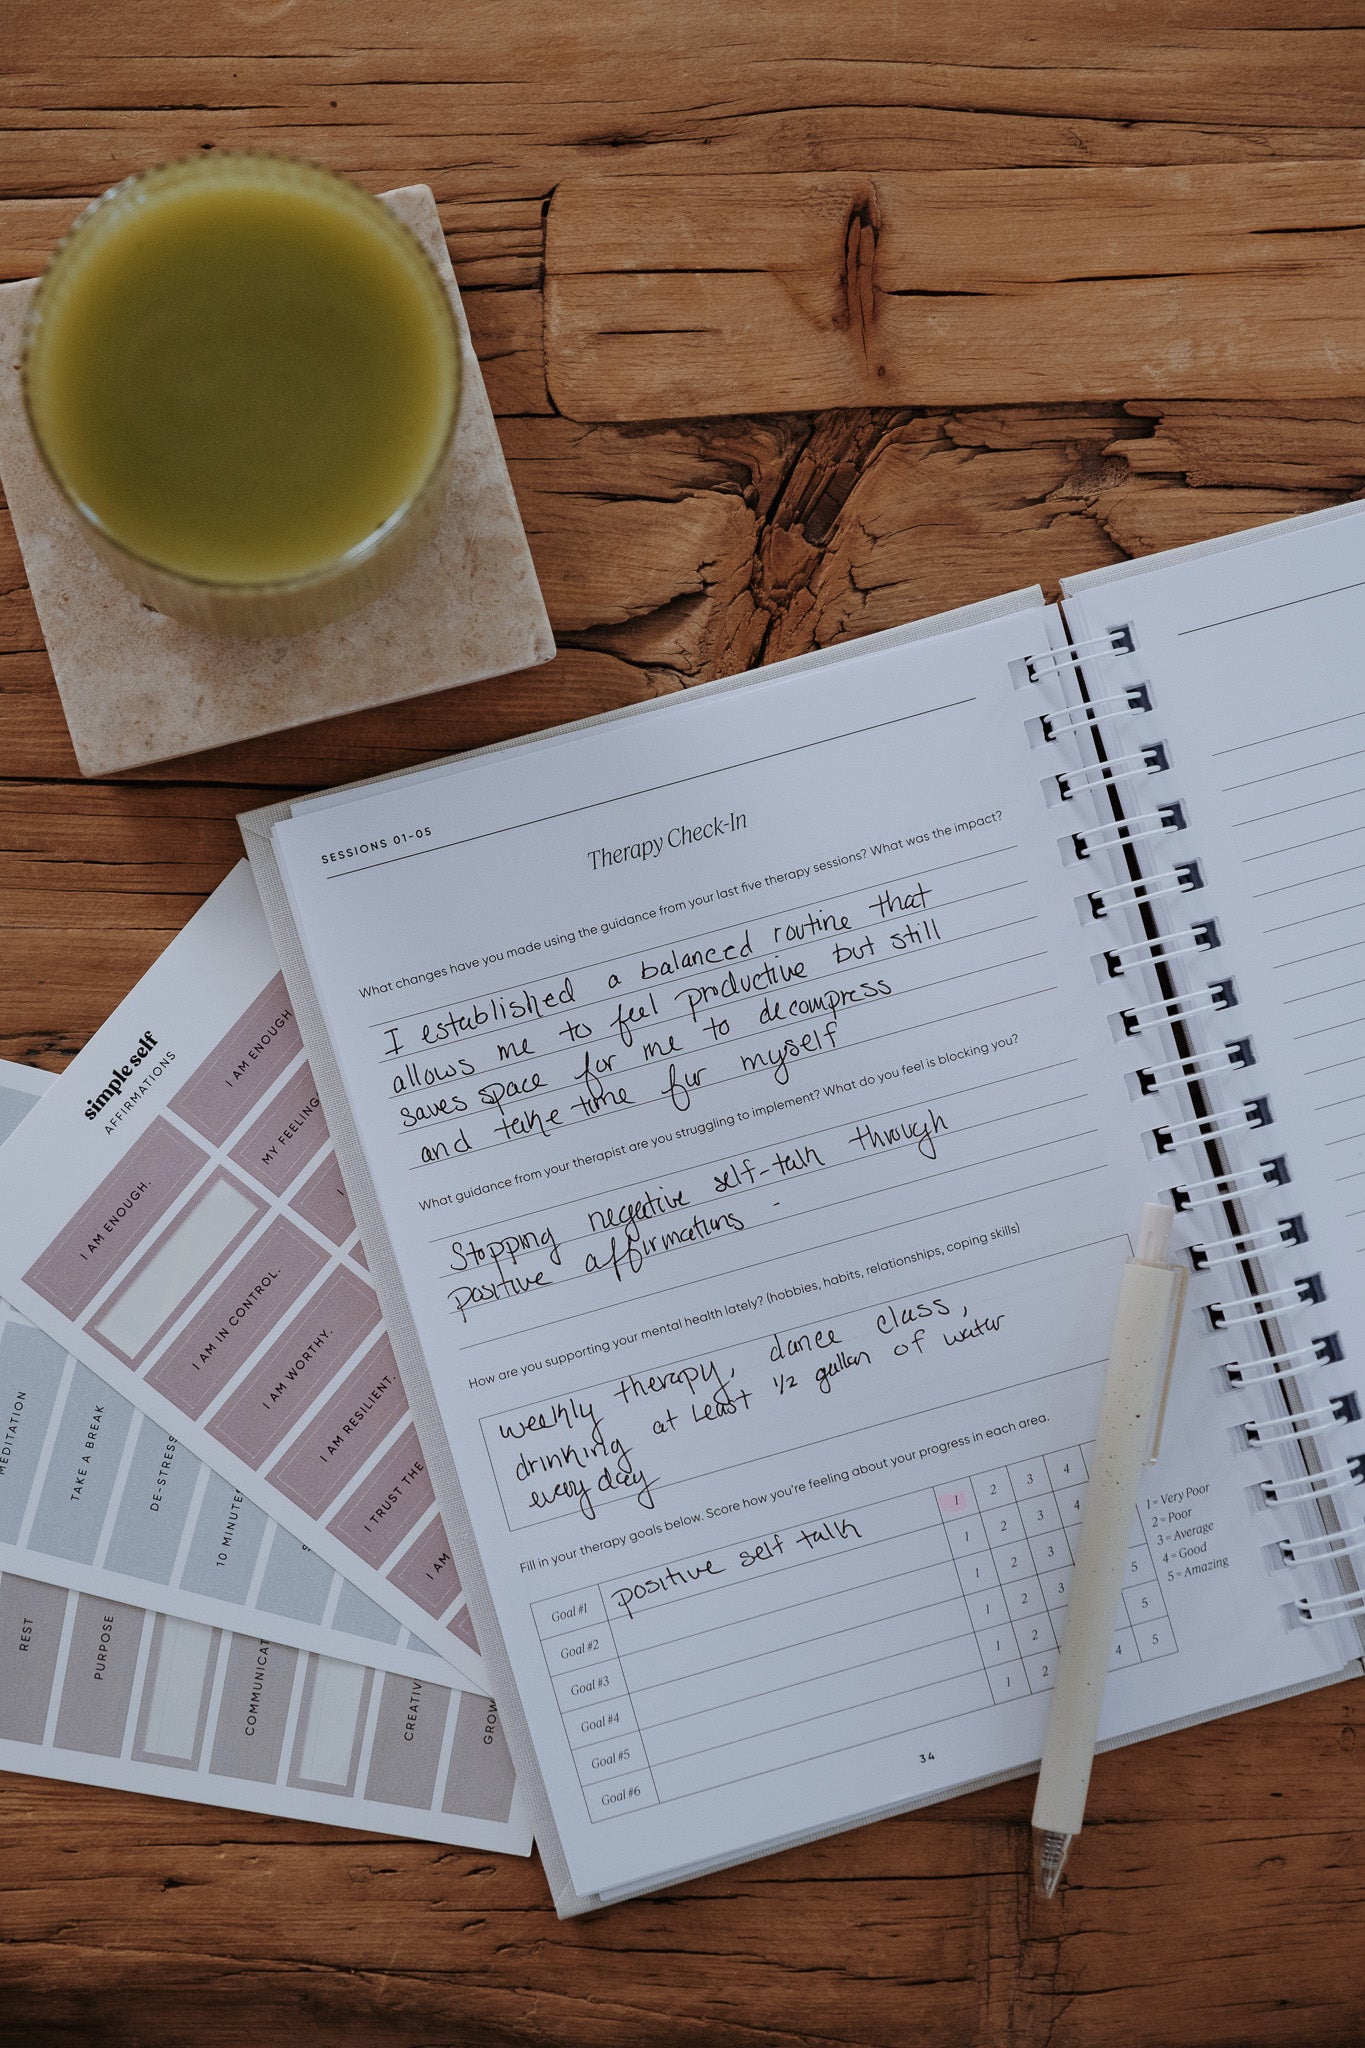 SESSIONS 01-05
Therapy Check-In
What changes have you made using the guidance from your last five therapy sessions? What was the impact?
I established a balanced routine that
allows me to feel productive but still
saves space for me to decompress
and take time for myself
What guidance from your therapist are you struggling to implement? What do you feel is blocking you?
Stopping negative self-talk through
positive affirmations -
How are you supporting your mental health lately? (hobbies, habits, relationships, coping skills)
weekly therapy, dance class,
drinking at least 1/2 gallon of water
every day
Fill in your therapy goals below. Score how you're feeling about your progress in each area.
Goal #1 positive self talk 1 2 3 4
Goal #2 1 2 3 4
Goal #3 1 2 3
Goal #4 1 2 3 5
Goal #5 1 2 5
Goal #6 1 2 4 5
1 = Very Poor
2 = Poor
3 = Average
4 = Good
5 = Amazing
34
simple self
AFFIRMATIONS
I AM ENOUGH.
I AM ENOUGH
MY FEELING
I
I AM IN CONTROL.
I AM WORTHY.
I AM RESILIENT.
I TRUST THE
I AM
MEDITATION
TAKE A BREAK
DE-STRESS
10 MINUTE
REST
PURPOSE
COMMUNICAT
CREATIV
GROW